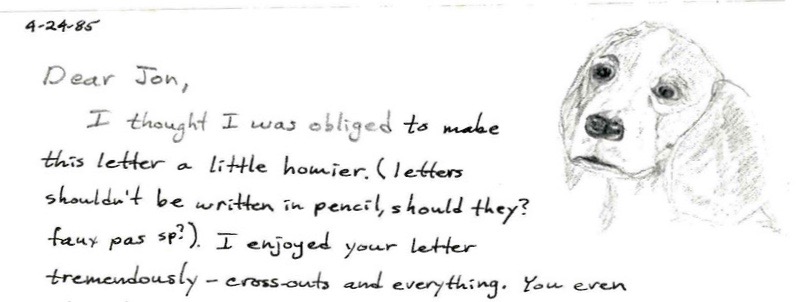 4-24-85
Dear Jon,
I thought I was obliged to make
this letter a little homier. (letters
shouldn't be written in pencil, should they?
faux pas sp?). I enjoyed your letter
tremendously - cross-outs and everything. You even